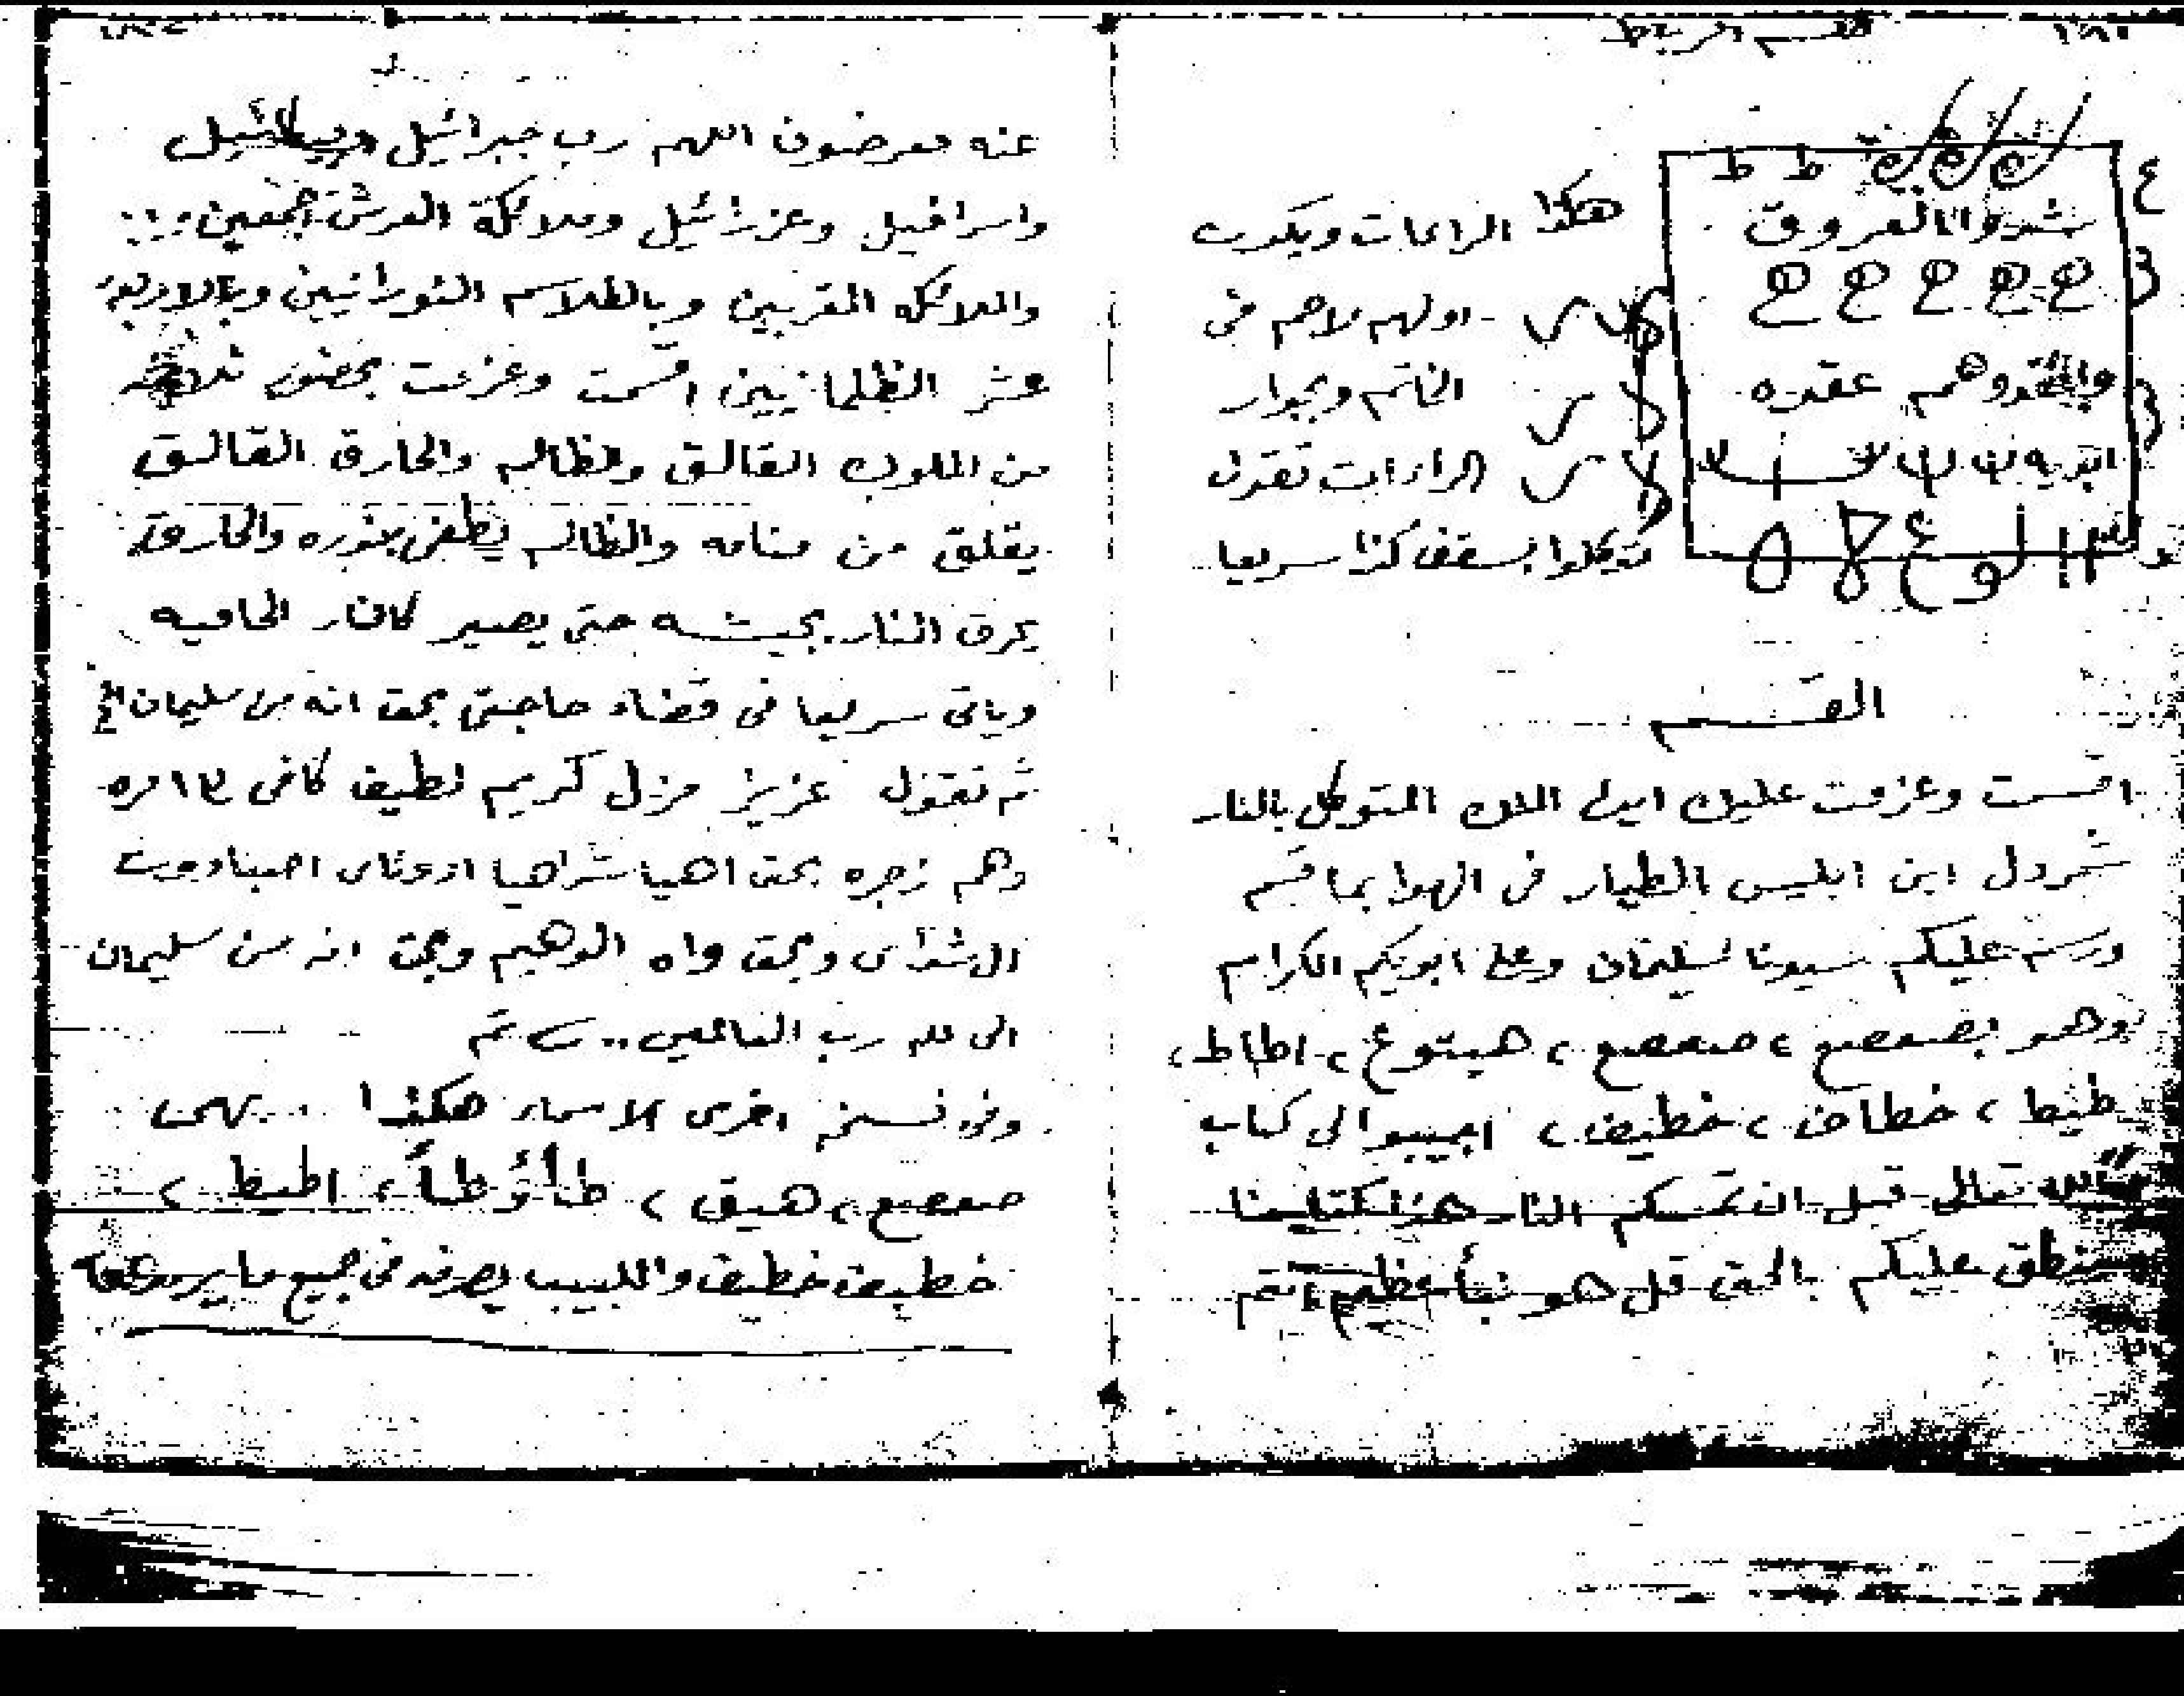 ١٨١
قسم الرباط
ط ط
شدوا العروق
هكذا الرايات ويكون
اولهم لاحم فى
واعقدوهم عقده
الخاتم وبجوار
ابديه
الرايات تقول
توكلوا بسقف كذا سريعا
القسم
اقسمت وعزمت عليك ايها الملك المتوكل بالنار
شمردل ابن ابليس الطيار فى الهوا بما قسم
عليكم سيدنا سليمان وعلى ابويكم الكرام
وهو بصعصع ، صعصع ، هيتوع ، اطاط ،
طيط ، خطاف ، خطيف ، اجيبوا الى كتاب
الله تعالى قبل ان تمسكم النار هذا كتابنا
ينطق عليكم بالحق قل هو نبأ عظيم انتم
عنه معرضون اللهم رب جبرائيل وميكائيل
واسرافيل وعزرائيل وملائكة العرش اجمعين
والملائكه المقربين وبالطلاسم النورانيين وبالاربعة
عشر الظلمانيين اقسمت وعزمت بحضور ثلاثة
من الملوك القالق والظالم والحارق القالق
يقلق من منامه والظالم والحارق
يحرق النار بجيشه حتى يصير كالنار الحاميه
وياتى سريعا فى قضاء حاجتى بحق انه من سليمان الخ
ثم تقول عزيز مزل كريم لطيف كافى ١٣ مره
وهم زجره بحق اهيا شراهيا ادوناى اصباوت
ال شداى وبحق واه الوهيم وبحق انه من سليمان
الى لله رب العالمين .. تم
وفى نسخه اخرى الاسماء هكذا ..
صعصع ، هيق ، طأؤطأ ، اطيط ،
خطيف خطيف واللبيب يصرفه فى جميع ما يريد